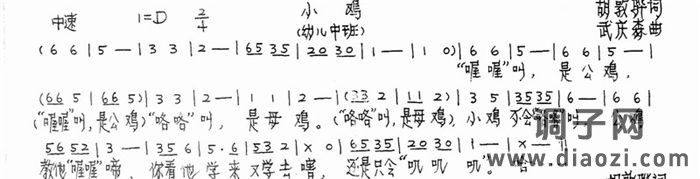 中速 1=D 2/4 小鸡 胡敦骅词
(幼儿中班) 武庆森曲
(6 6 | 5 — | 3 3 | 2 — | 6535 | 2030 | 1 — | 1 0) | 6 6 | 5 — | 6 6 | 5 — |
“喔喔”叫, 是公鸡,
(66 5 | 66 5) | 3 3 | 2 — | 1 1 | 2 — | (33 2 | 11 2) | 3 5 | 3535 | 6 — | 6 6 |
(“喔喔”叫,是公鸡)“咯咯”叫, 是母鸡。(“咯咯”叫,是母鸡) 小鸡
5652 | 3 — | 35 6 | 5. 6 | 532 | x 0 | 6535 | 2030 | 1 — | x — |
教他“喔喔”啼, 你看他学来又学去喳, 还是只会“叽叽叽”。
调子网
www.diaozi.com
胡敦骅词